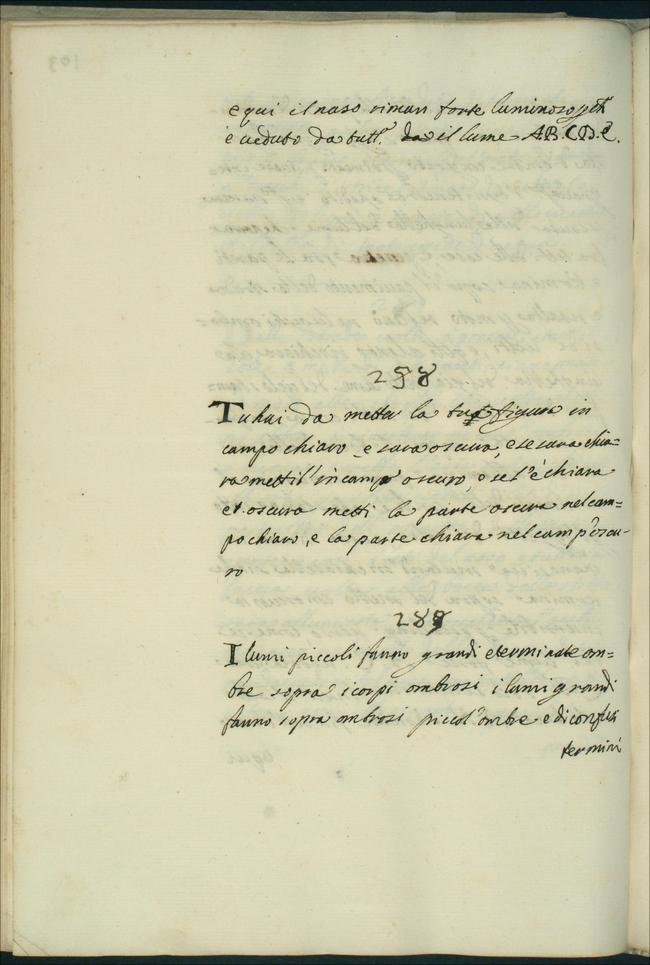 e qui il naso riman forte luminoso
è ueduto da tutt.° il lume A.B.C.D.E.
258
Tu hai da metter la tua figura in
campo chiaro, e sara oscura, e se sara chia=
ra mettil' in campo oscuro, e se l'è chiara
et oscura metti la parte oscura nel cam=
po chiaro, e la parte chiara nel camp'oscu-
ro
289
I lumi piccoli fanno grandi e terminate om=
bre sopra i corpi ombrosi i lumi grandi
fanno sopra ombrosi piccol'ombre e di confusi
termini